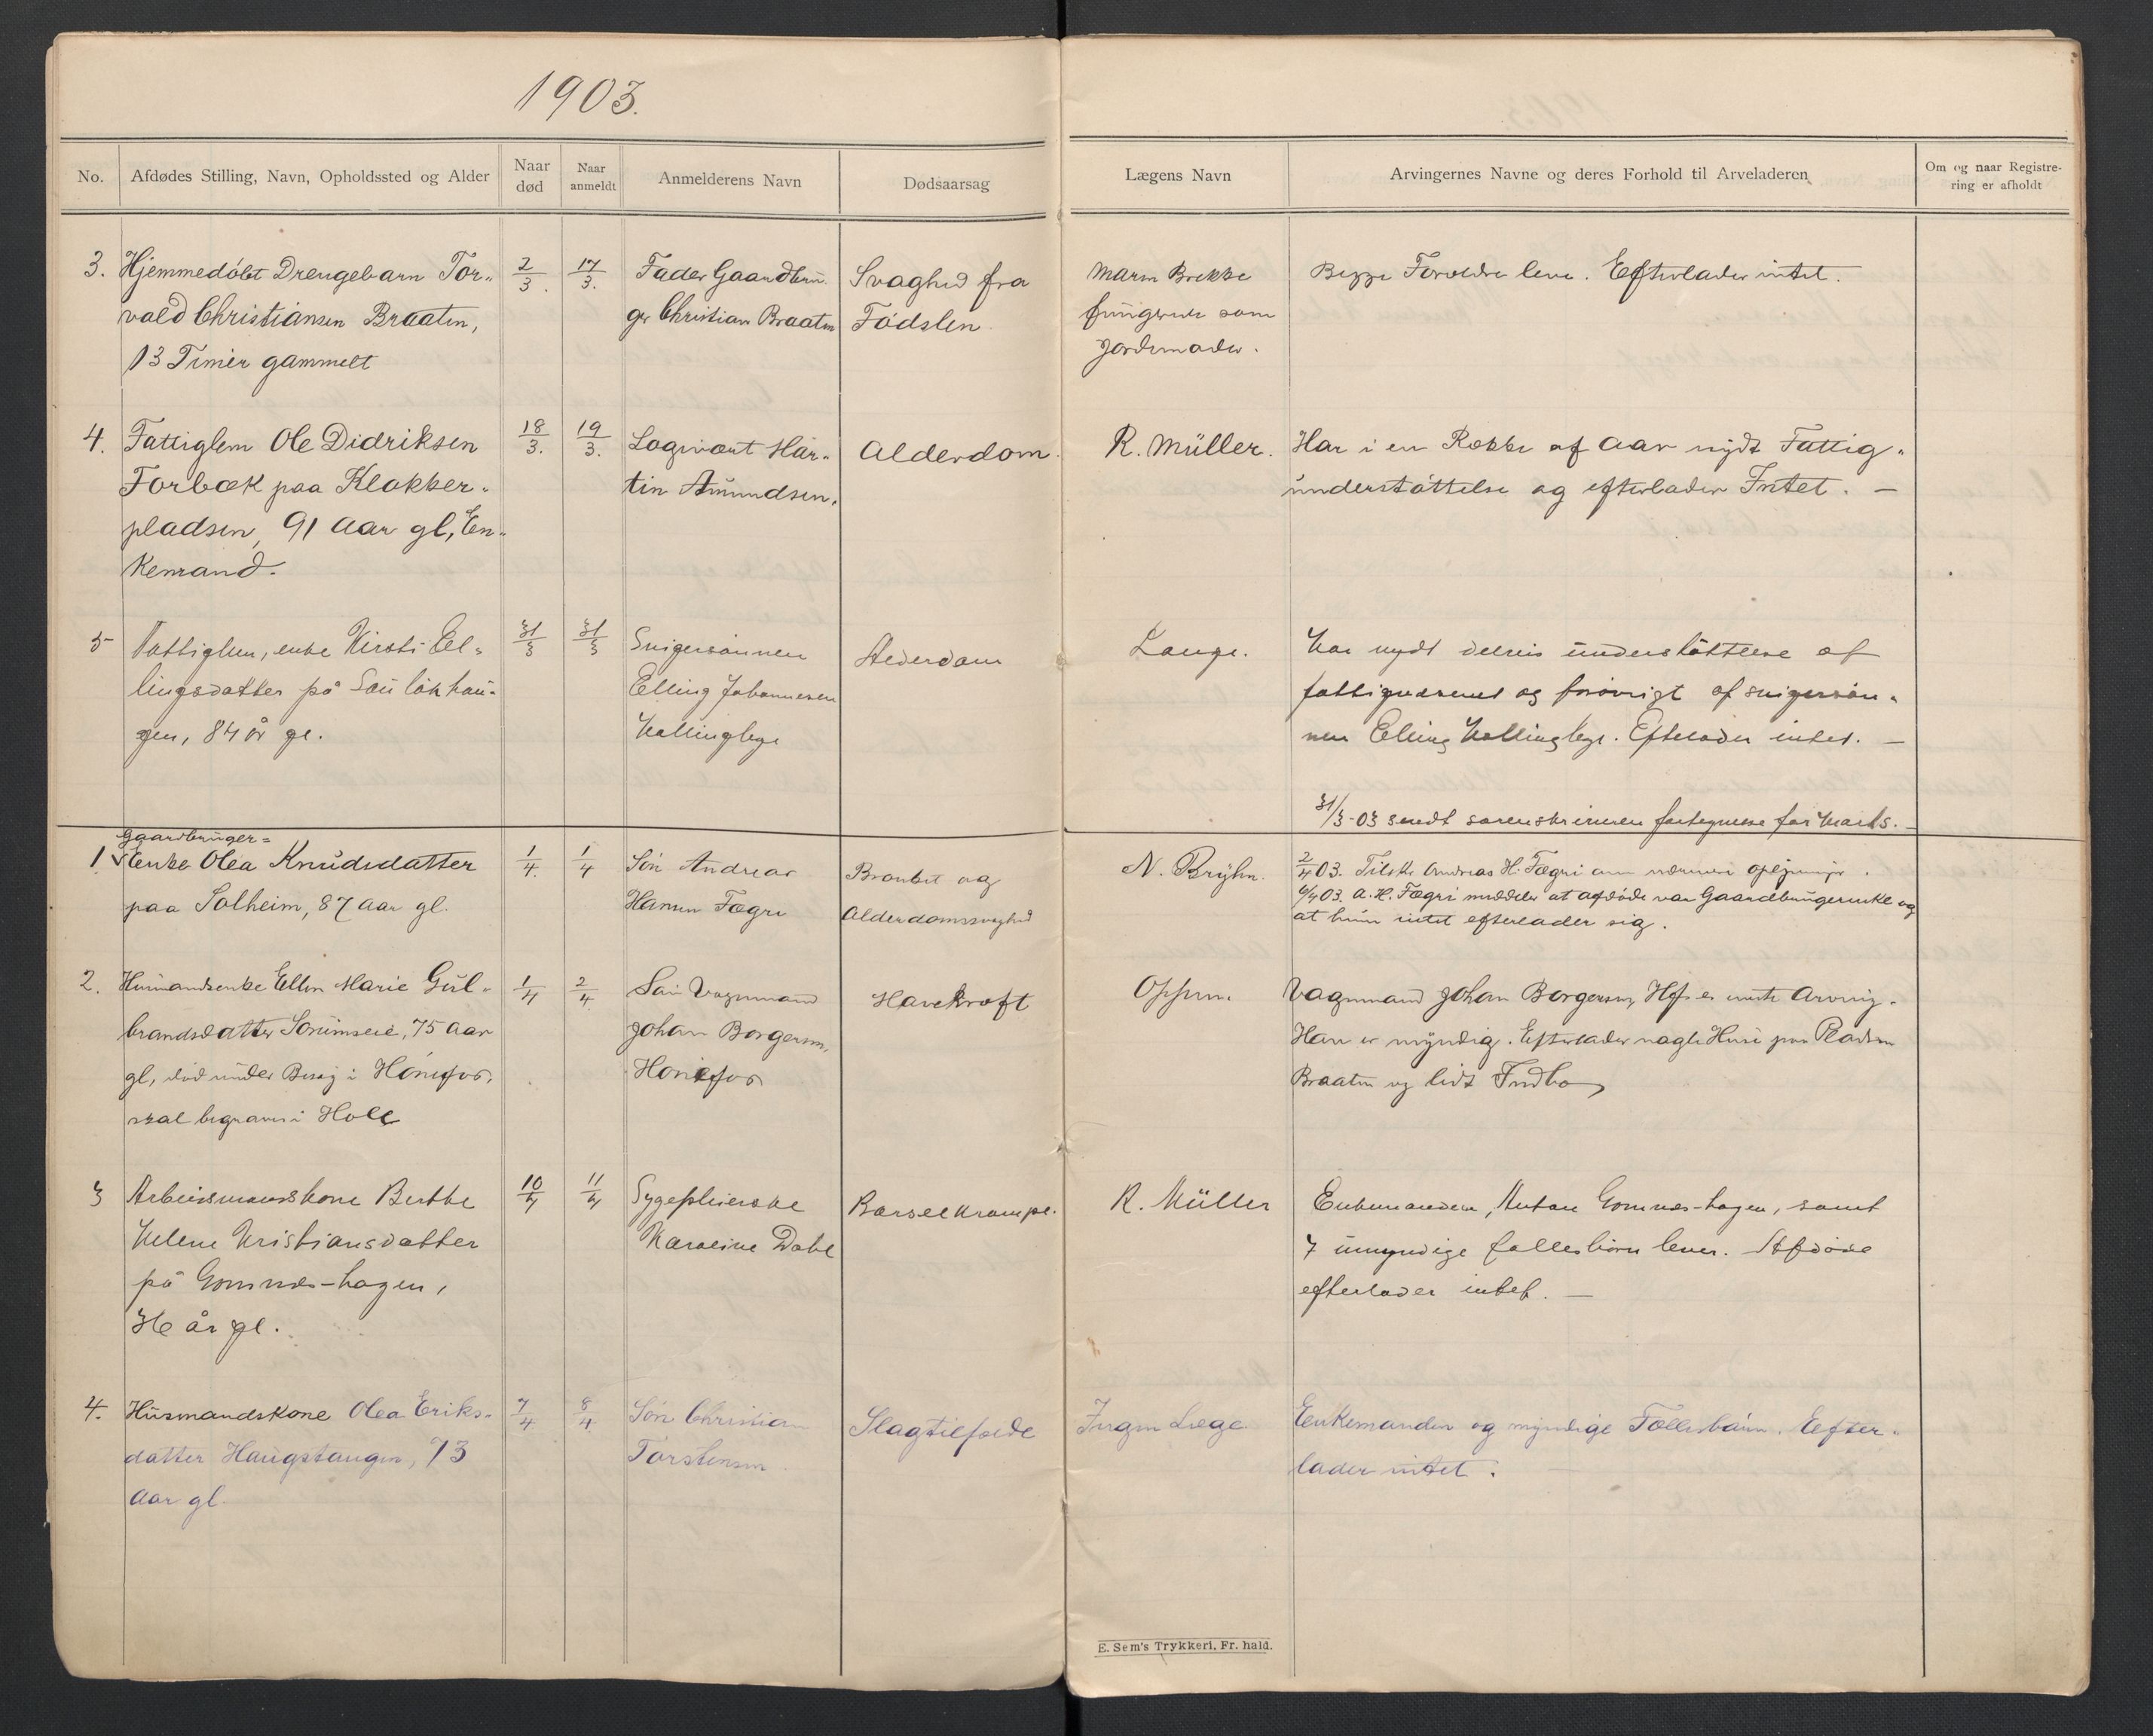 1903.
No.
Afdødes Stilling, Navn, Opholdssted og Alder
Naar død
Naar anmeldt
Anmelderens Navn
Dødsaarsag
Lægens Navn
Arvingernes Navne og deres Forhold til Arveladeren
Om og naar Registre-
ring er afholdt
3. Hjemmedøbt Drengebarn Tor-
vald Christiansen Braaten,
13 Timer gammelt
2/3.
17/3.
Fader Gaardbru-
ger Christian Braaten
Svaghed fra
Fødslen
Maren Brekke
fungerende som
Jordemoder.
Begge Forældre lever. Efterlader intet.
4. Fattiglem Ole Didriksen
Forbæk paa Klokker-
pladsen, 91 Aar gl, En-
kemand.
18/3.
19/3.
Logivært Mar-
tin Amundsen.
Alderdom.
R. Müller.
Har i en Række af Aar nydt Fattig-
understøttelse og efterlader Intet. —
5 Fattiglem, enke Kirsti El-
lingsdatter på
gen, 84 år gl.
31/3
31/3
Svigersønnen
Elling Johannesen
Hallingbye
Alderdom
Lange.
Har nydt delvis understøttelse af
fattigvæsenet og forøvrigt af svigersøn-
nen Elling Hallingbye. Efterlader intet. —
31/3-03 sendt sorenskriveren fortegnelse for Marts. —
Gaardbruger-
1. Enke Olea Knudsdatter
paa Solheim, 87 Aar gl.
1/4.
1/4
Søn Andreas
Hansen Fægri
Bronkit og
Alderdomssvaghed
N. Bryhn.
2/4 03. Tilskr. Andreas H. Fægri om nærmere oplysninger.
6/4 03. A. H. Fægri meddeler at afdøde var Gaardbrugerenke og
at hun intet efterlader sig.
2. Husmandsenke Ellen Marie Gul-
brandsdatter Sørumseie, 75 Aar
gl, død under Besøg i Hønefos,
skal begraves i Hole
1/4
2/4.
Søn Vognmand
Johan Borgersen,
Hønefos
Mavekræft
Oppen.
Vognmand Johan Borgersen, Hfs er eneste Arving.
Han er myndig. Efterlader nogle Huse paa Pladsen
Braaten og lidt Indbo
3 Arbeidsmandskone Berthe
Helene Kristiansdatter
på Gomnæs-hagen,
36 år gl.
10/4
11/4
Sygepleierske
Karoline Dahl
Barselkrampe.
R. Müller
Enkemanden, Anton Gomnæs-hagen, samt
7 umyndige fællesbørn lever. Afdøde
efterlader intet. —
4. Husmandskone Olea Eriks-
datter Haugstangen, 73
Aar gl.
7/4.
8/4.
Søn Christian
Torstensen
Slagtilfælde
Ingen Læge
Enkemanden og myndige Fællesbørn. Efter-
lader intet.
E. Sem's Trykkeri, Fr. hald.